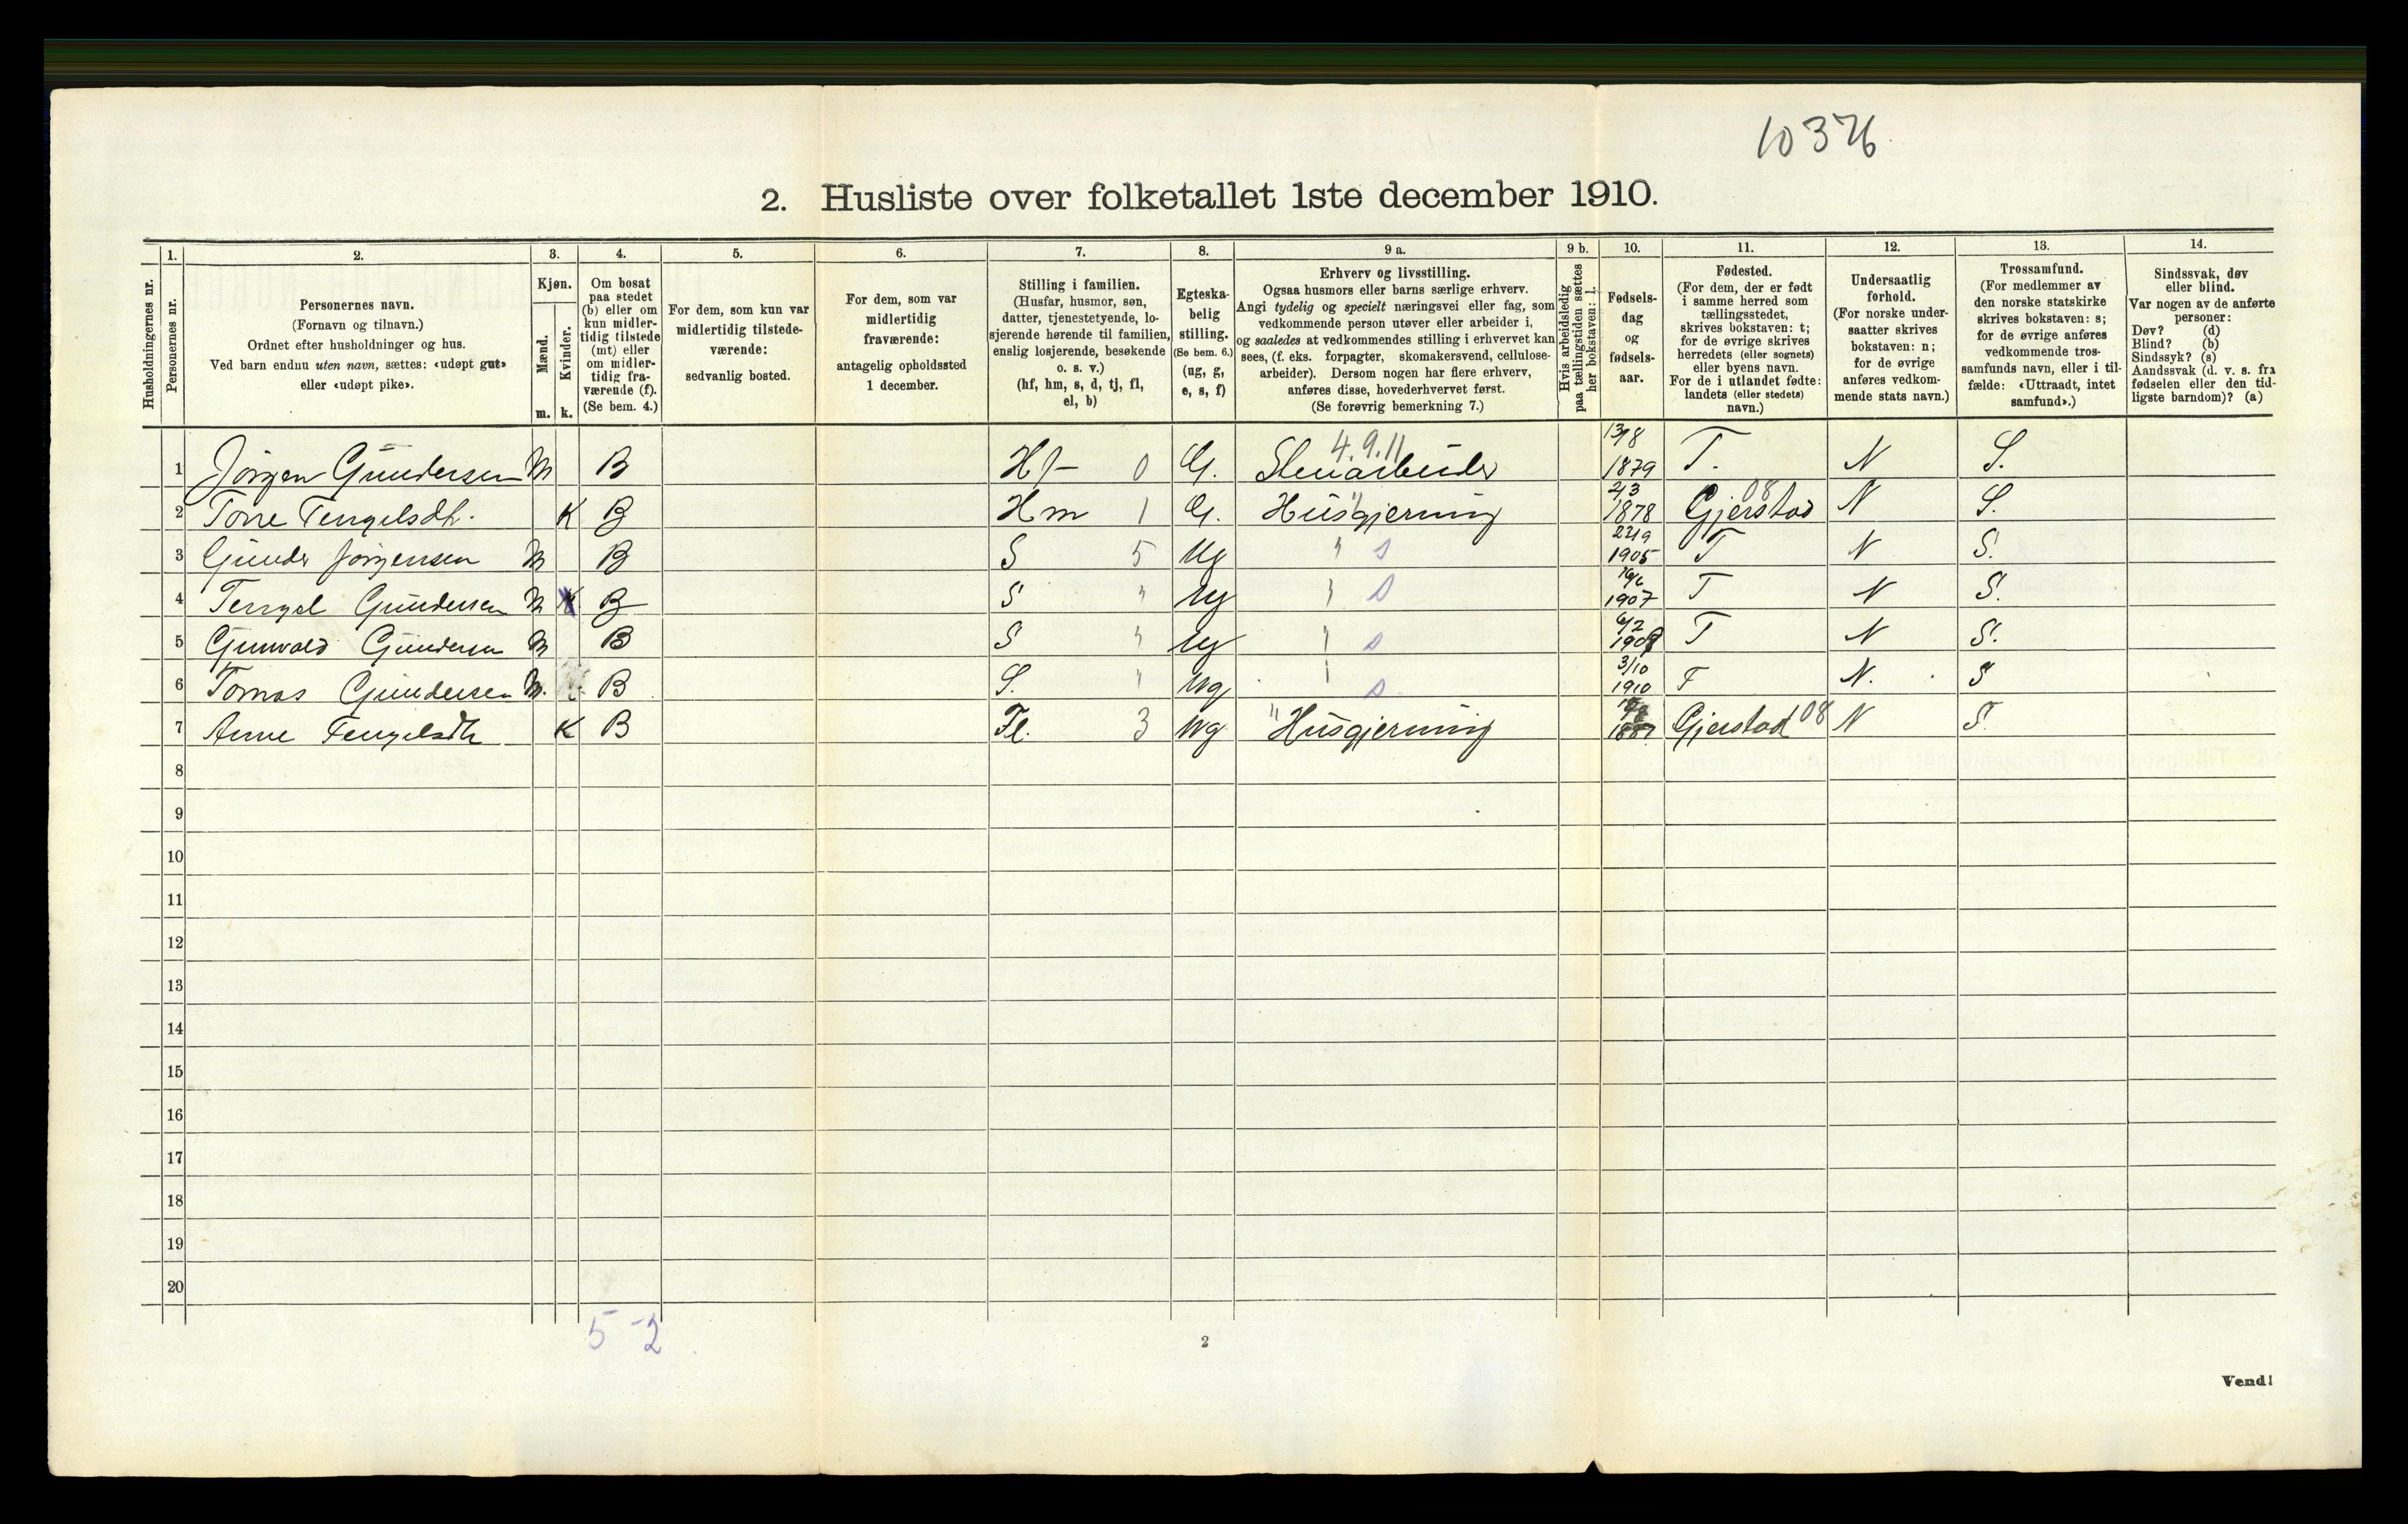 10376
2. Husliste over folketallet 1ste december 1910.
Husholdningernes nr.
1.
Personernes nr.
2.
Personernes navn.
(Fornavn og tilnavn.)
Ordnet efter husholdninger og hus.
Ved barn endnu uten navn, sættes: «udøpt gut»
eller «udøpt pike».
3.
Kjøn.
Mænd.
m.
Kvinder.
k.
4.
Om bosat
paa stedet
(b) eller om
kun midler-
tidig tilstede
(mt) eller
om midler-
tidig fra-
værende (f).
(Se bem. 4.)
5.
For dem, som kun var
midlertidig tilstede-
værende:
sedvanlig bosted.
6.
For dem, som var
midlertidig
fraværende:
antagelig opholdssted
1 december.
7.
Stilling i familien.
(Husfar, husmor, søn,
datter, tjenestetyende, lo-
sjerende hørende til familien,
enslig losjerende, besøkende
o. s. v.)
(hf, hm, s, d, tj, fl,
el, b)
8.
Egteska-
belig
stilling.
(Se bem. 6.)
(ug, g,
e, s, f)
9 a.
Erhverv og livsstilling.
Ogsaa husmors eller barns særlige erhverv.
Angi tydelig og specielt næringsvei eller fag, som
vedkommende person utøver eller arbeider i,
og saaledes at vedkommendes stilling i erhvervet kan
sees, (f. eks. forpagter, skomakersvend, cellulose-
arbeider). Dersom nogen har flere erhverv,
anføres disse, hovederhvervet først.
(Se forøvrig bemerkning 7.)
9 b.
Hvis arbeidsledig
paa tællingstiden sættes
her bokstaven: l.
10.
Fødsels-
dag
og
fødsels-
aar.
11.
Fødested.
(For dem, der er født
i samme herred som
tællingsstedet,
skrives bokstaven: t;
for de øvrige skrives
herredets (eller sognets)
eller byens navn.
For de i utlandet fødte:
landets (eller stedets)
navn.)
12.
Undersaatlig
forhold.
(For norske under-
saatter skrives
bokstaven: n;
for de øvrige
anføres vedkom-
mende stats navn.)
13.
Trossamfund.
(For medlemmer av
den norske statskirke
skrives bokstaven: s;
for de øvrige anføres
vedkommende tros-
samfunds navn, eller i til-
fælde: «Uttraadt, intet
samfund».)
14.
Sindssvak, døv
eller blind.
Var nogen av de anførte
personer:
Døv? (d)
Blind? (b)
Sindssyk? (s)
Aandssvak (d. v. s. fra
fødselen eller den tid-
ligste barndom)? (a)
4.9.11
1 Jörgen Gundersen M B Hf 0 G. Stenarbeider 13/8 1879 T. N S.
2 Tone Tengelsdtr. K B Hm 1 G. Husgjerning 2/3 1878 Gjerstad 08 N S.
3 Gunder Jörgensen M B S 5 Ug " s 22/9 1905 T N S.
4 Tengel Gundersen M B S " Ug " s 16/6 1907 T N S.
5 Gunvald Gundersen M B S " Ug " s 6/2 1908 T N S.
6 Tomas Gundersen M. B S. " Ug " s 3/10 1910 T N. S
7 Anne Tengelsdtr K B Fl. 3 Ug " Husgjerning 1887 Gjerstad 08 N S.
8
9
10
11
12
13
14
15
16
17
18
19
20
5-2
2
Vend!